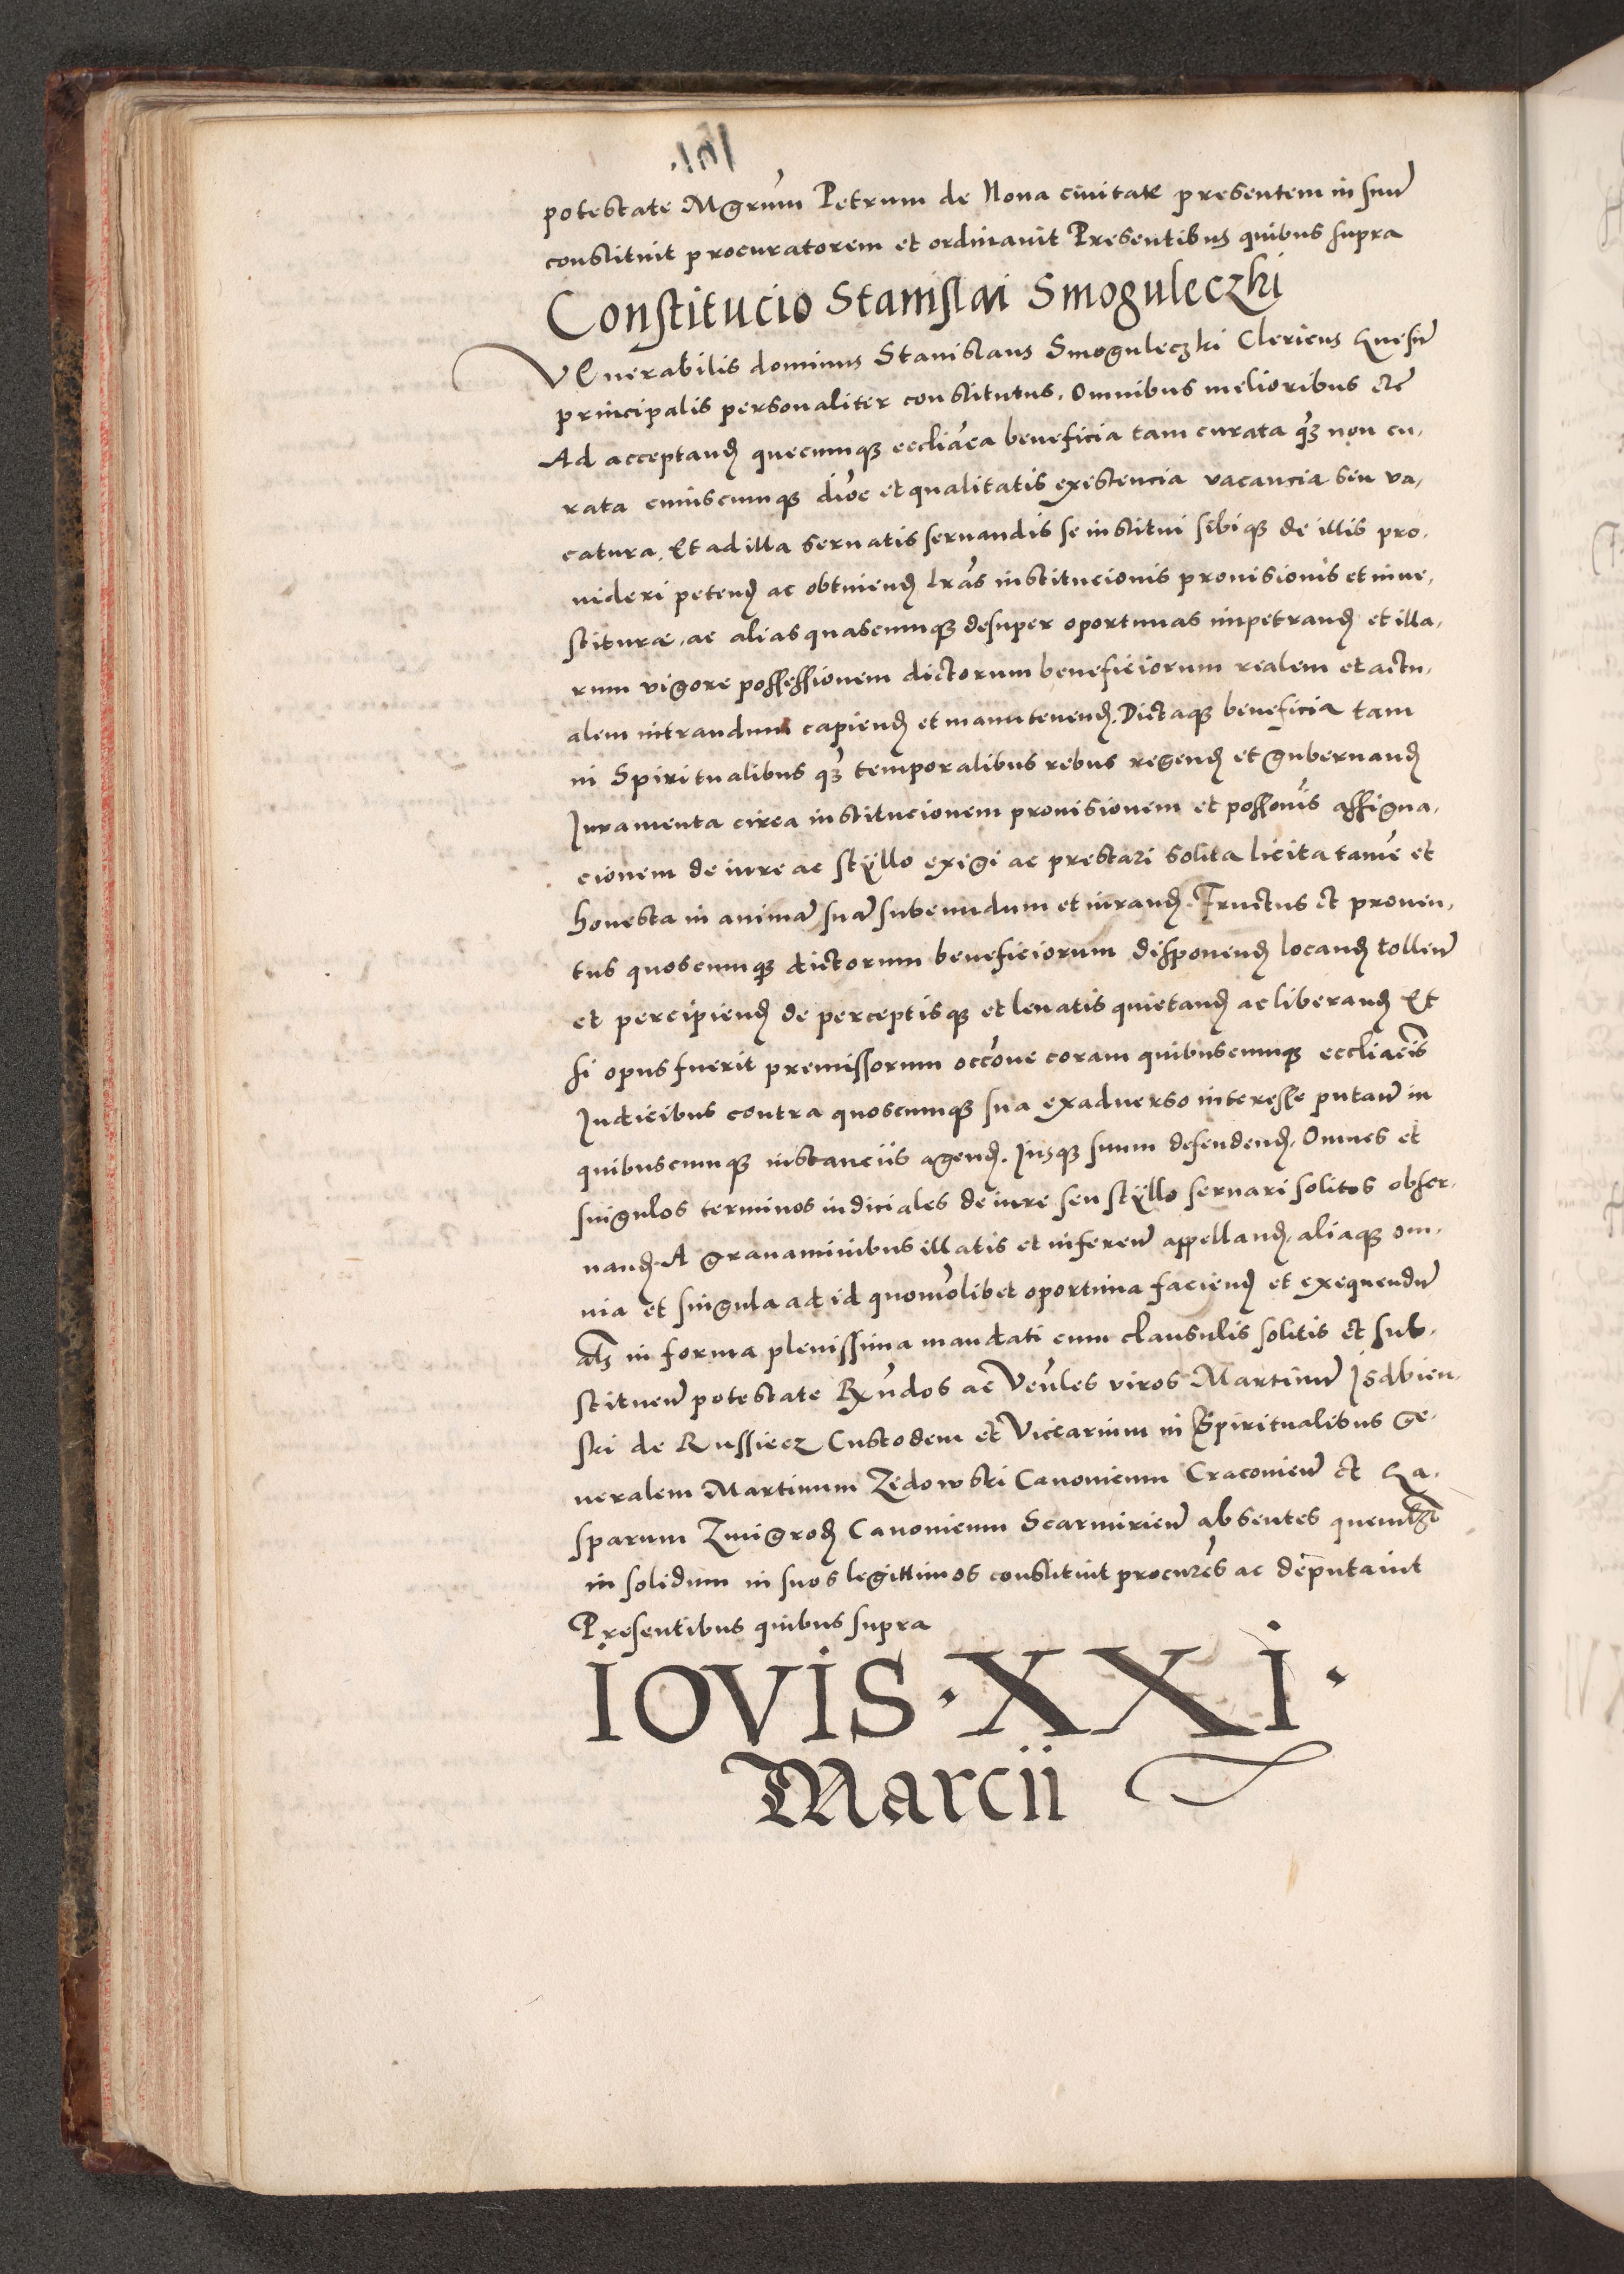 potestate Mgrum Petrum de Noua ciuitate presentem in suu͂
constituit procuratorem et ordinauit Presentibus quibus supra
Constitucio Stanislai Smoguleczki
VEnerabilis dominus Stanislaus Smoguleczki Clericus Gnesn͂
principalis personaliter constitutus. Omnibus melioribus etc͂
Ad acceptand̨ quecumqꝫ eccliaca beneficia tam curata qꝫ non cu,
rata cuiuscumqꝫ dioc et qualitatis existencia vacancia siu va,
catura. Et ad illa seruatis seruandis se institui sibiqꝫ de illis pro,
uideri petend̨ ac obtinend̨ lr͂as institucionis prouisionis et inue,
stiturae, ac alias quascumqꝫ desuper oportunas impetrand̨ et illa,
rum vigore possessionem dictorum beneficiorum realem et actu,
alem intrandum capiend̨ et manutenend̨. Dictaqꝫ beneficia tam
in Spiritualibus qꝫ temporalibus rebus regend̨ et gubernand̨
Iuramenta circa institucionem prouisionem et possonis assigna,
cionem de iure ac stÿllo exigi ac prestari solita licita tame͂ et
honesta in anima͂ sua͂ subeundum et iurand̨. Fructus et prouen,
tus quoscumqꝫ dictorum beneficiorum disponend̨ locand̨ tollen͂
et percipiend̨ de perceptisqꝫ et leuatis quietand̨ ac liberand̨ Et
si opus fuerit premissorum occo͂ne coram quibuscumqꝫ eccliacis
Iudicibus contra quoscumqꝫ sua exaduerso interesse putan͂ in
quibuscumqꝫ instanciis agend̨. Iusqꝫ suum defendend̨. Omnes et
singulos terminos iudiciales de iure seu stÿllo seruari solitos obser,
uand̨. A grauaminibus illatis et inferen͂ appelland̨, aliaqꝫ om,
nia et singula ad id quomolibet oportuna faciend̨ et exequendu͂
al̄s in forma plenissima mandati cum clausulis solitis et sub,
stituen͂ potestate Rn͂dos ac Ven͂les viros Martinu͂ Isdbien,
ski de Russiecz Custodem et Viccarium in Spiritualibus ge,
neralem Martinum Zedowski Canonicum Cracouien͂ et Ga,
sparum Zmigrod̨ Canonicum Scarmirien͂ absentes quemlꝫt
in solidum in suos legittimos constituit procures ac deputauit
Presentibus quibus supra
IOVIS · XXI ·
Marcii